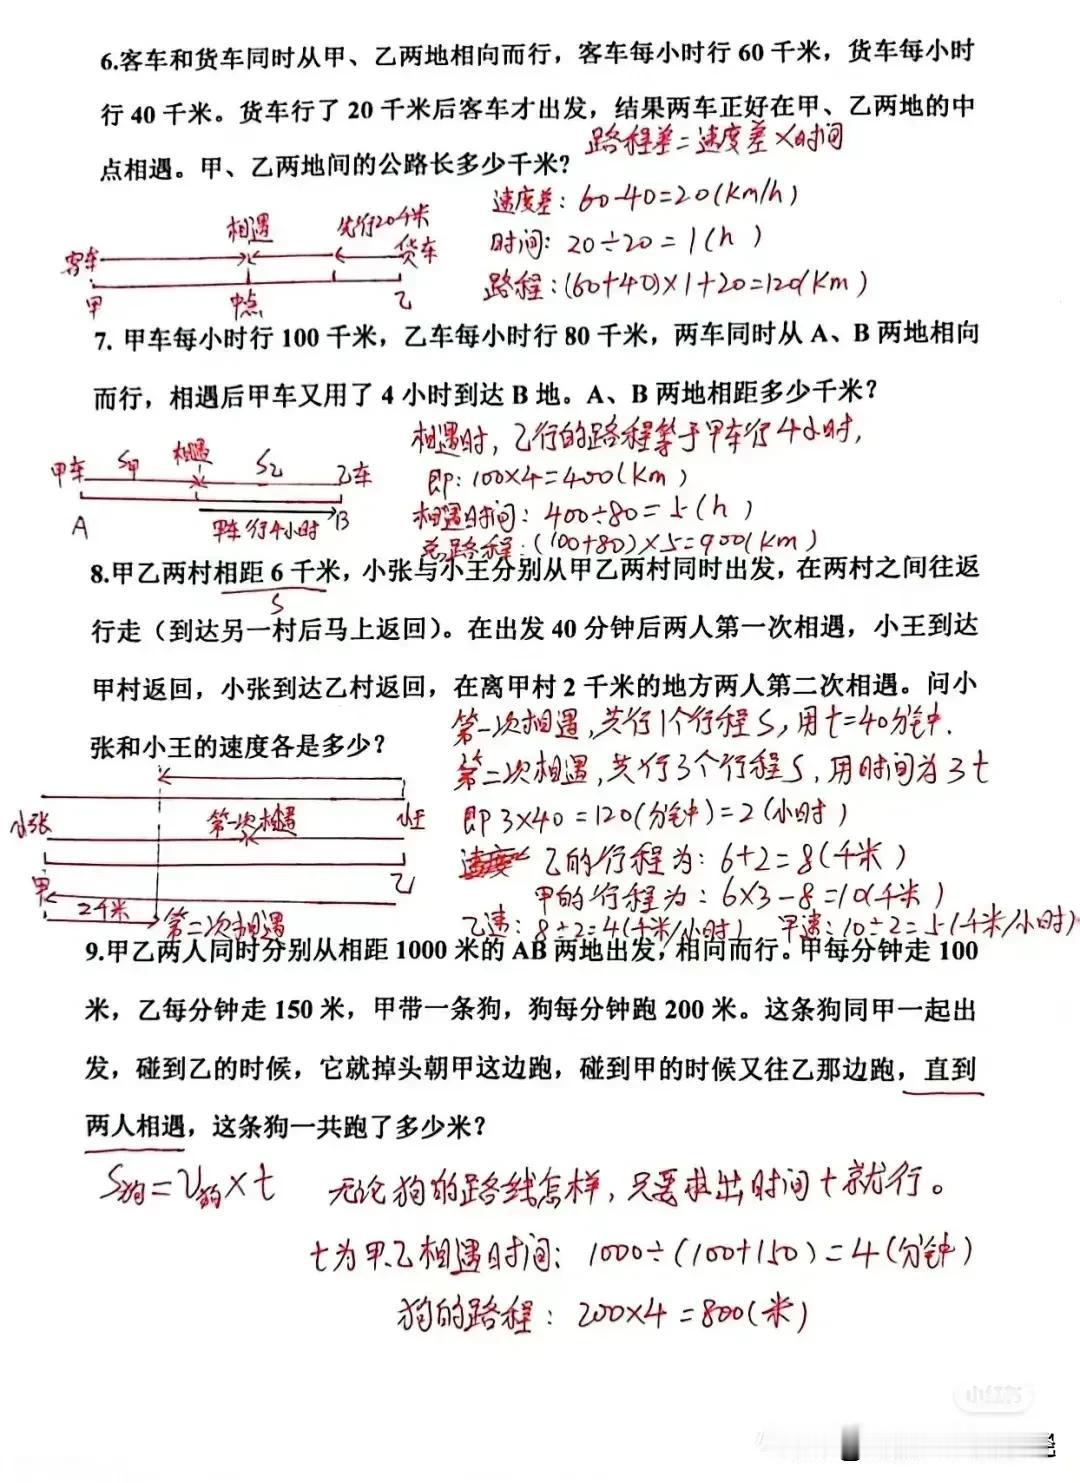 6.客车和货车同时从甲、乙两地相向而行，客车每小时行 60 千米，货车每小时
行 40 千米。货车行了 20 千米后客车才出发，结果两车正好在甲、乙两地的中
点相遇。甲、乙两地间的公路长多少千米?
路程差=速度差×时间
速度差: 60-40=20(km/h)
时间: 20÷20=1(h)
路程:(60+40)×1+20=120(km)
相遇 先行20千米
客车 货车
甲 中点 乙
7. 甲车每小时行 100 千米，乙车每小时行 80 千米，两车同时从 A、B 两地相向
而行，相遇后甲车又用了 4 小时到达 B 地。A、B 两地相距多少千米？
相遇时，乙行的路程等于甲车行4小时,
即:100×4=400(km)
相遇时间: 400÷80=5(h)
总路程:(100+80)×5=900(km)
甲车 S甲 相遇 S乙 乙车
A 甲车行4小时 B
8.甲乙两村相距 6 千米，小张与小王分别从甲乙两村同时出发，在两村之间往返
S
行走（到达另一村后马上返回）。在出发 40 分钟后两人第一次相遇，小王到达
甲村返回，小张到达乙村返回，在离甲村 2 千米的地方两人第二次相遇。问小
张和小王的速度各是多少？
第一次相遇,共行1个行程S,用t=40分钟.
第二次相遇,共行3个行程S,用时间为3t
即3×40=120(分钟)=2(小时)
乙的行程为: 6+2=8(千米)
甲的行程为: 6×3-8=10(千米)
乙速: 8÷2=4(千米/小时) 甲速:10÷2=5(千米/小时)
小张 第一次相遇 小王
甲 乙
2千米 第二次相遇
9.甲乙两人同时分别从相距 1000 米的 AB 两地出发，相向而行。甲每分钟走 100
米，乙每分钟走 150 米，甲带一条狗，狗每分钟跑 200 米。这条狗同甲一起出
发，碰到乙的时候，它就掉头朝甲这边跑，碰到甲的时候又往乙那边跑，直到
两人相遇，这条狗一共跑了多少米？
S狗=V狗×t 无论狗的路线怎样,只要求出时间t就行。
t为甲、乙相遇时间: 1000÷(100+150)=4(分钟)
狗的路程: 200×4=800(米)
小红书